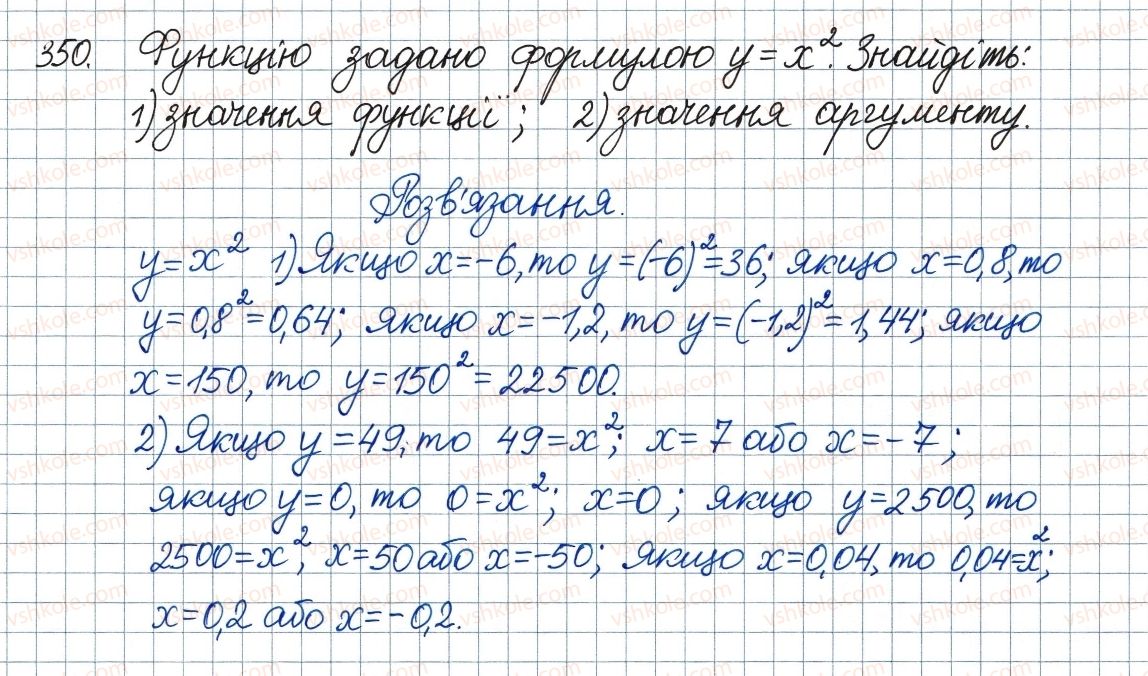 350. Функцію задано формулою y = x². Знайдіть:
1) значення функції...; 2) значення аргументу.
Розв'язання.
y = x² 1) Якщо x = -6, то y = (-6)² = 36; якщо x = 0,8, то
y = 0,8² = 0,64; якщо x = -1,2, то y = (-1,2)² = 1,44; якщо
x = 150, то y = 150² = 22500.
2) Якщо y = 49, то 49 = x²; x = 7 або x = -7;
якщо y = 0, то 0 = x²; x = 0; якщо y = 2500, то
2500 = x², x = 50 або x = -50; якщо x = 0,04, то 0,04 = x²;
x = 0,2 або x = -0,2.
vshkole.com